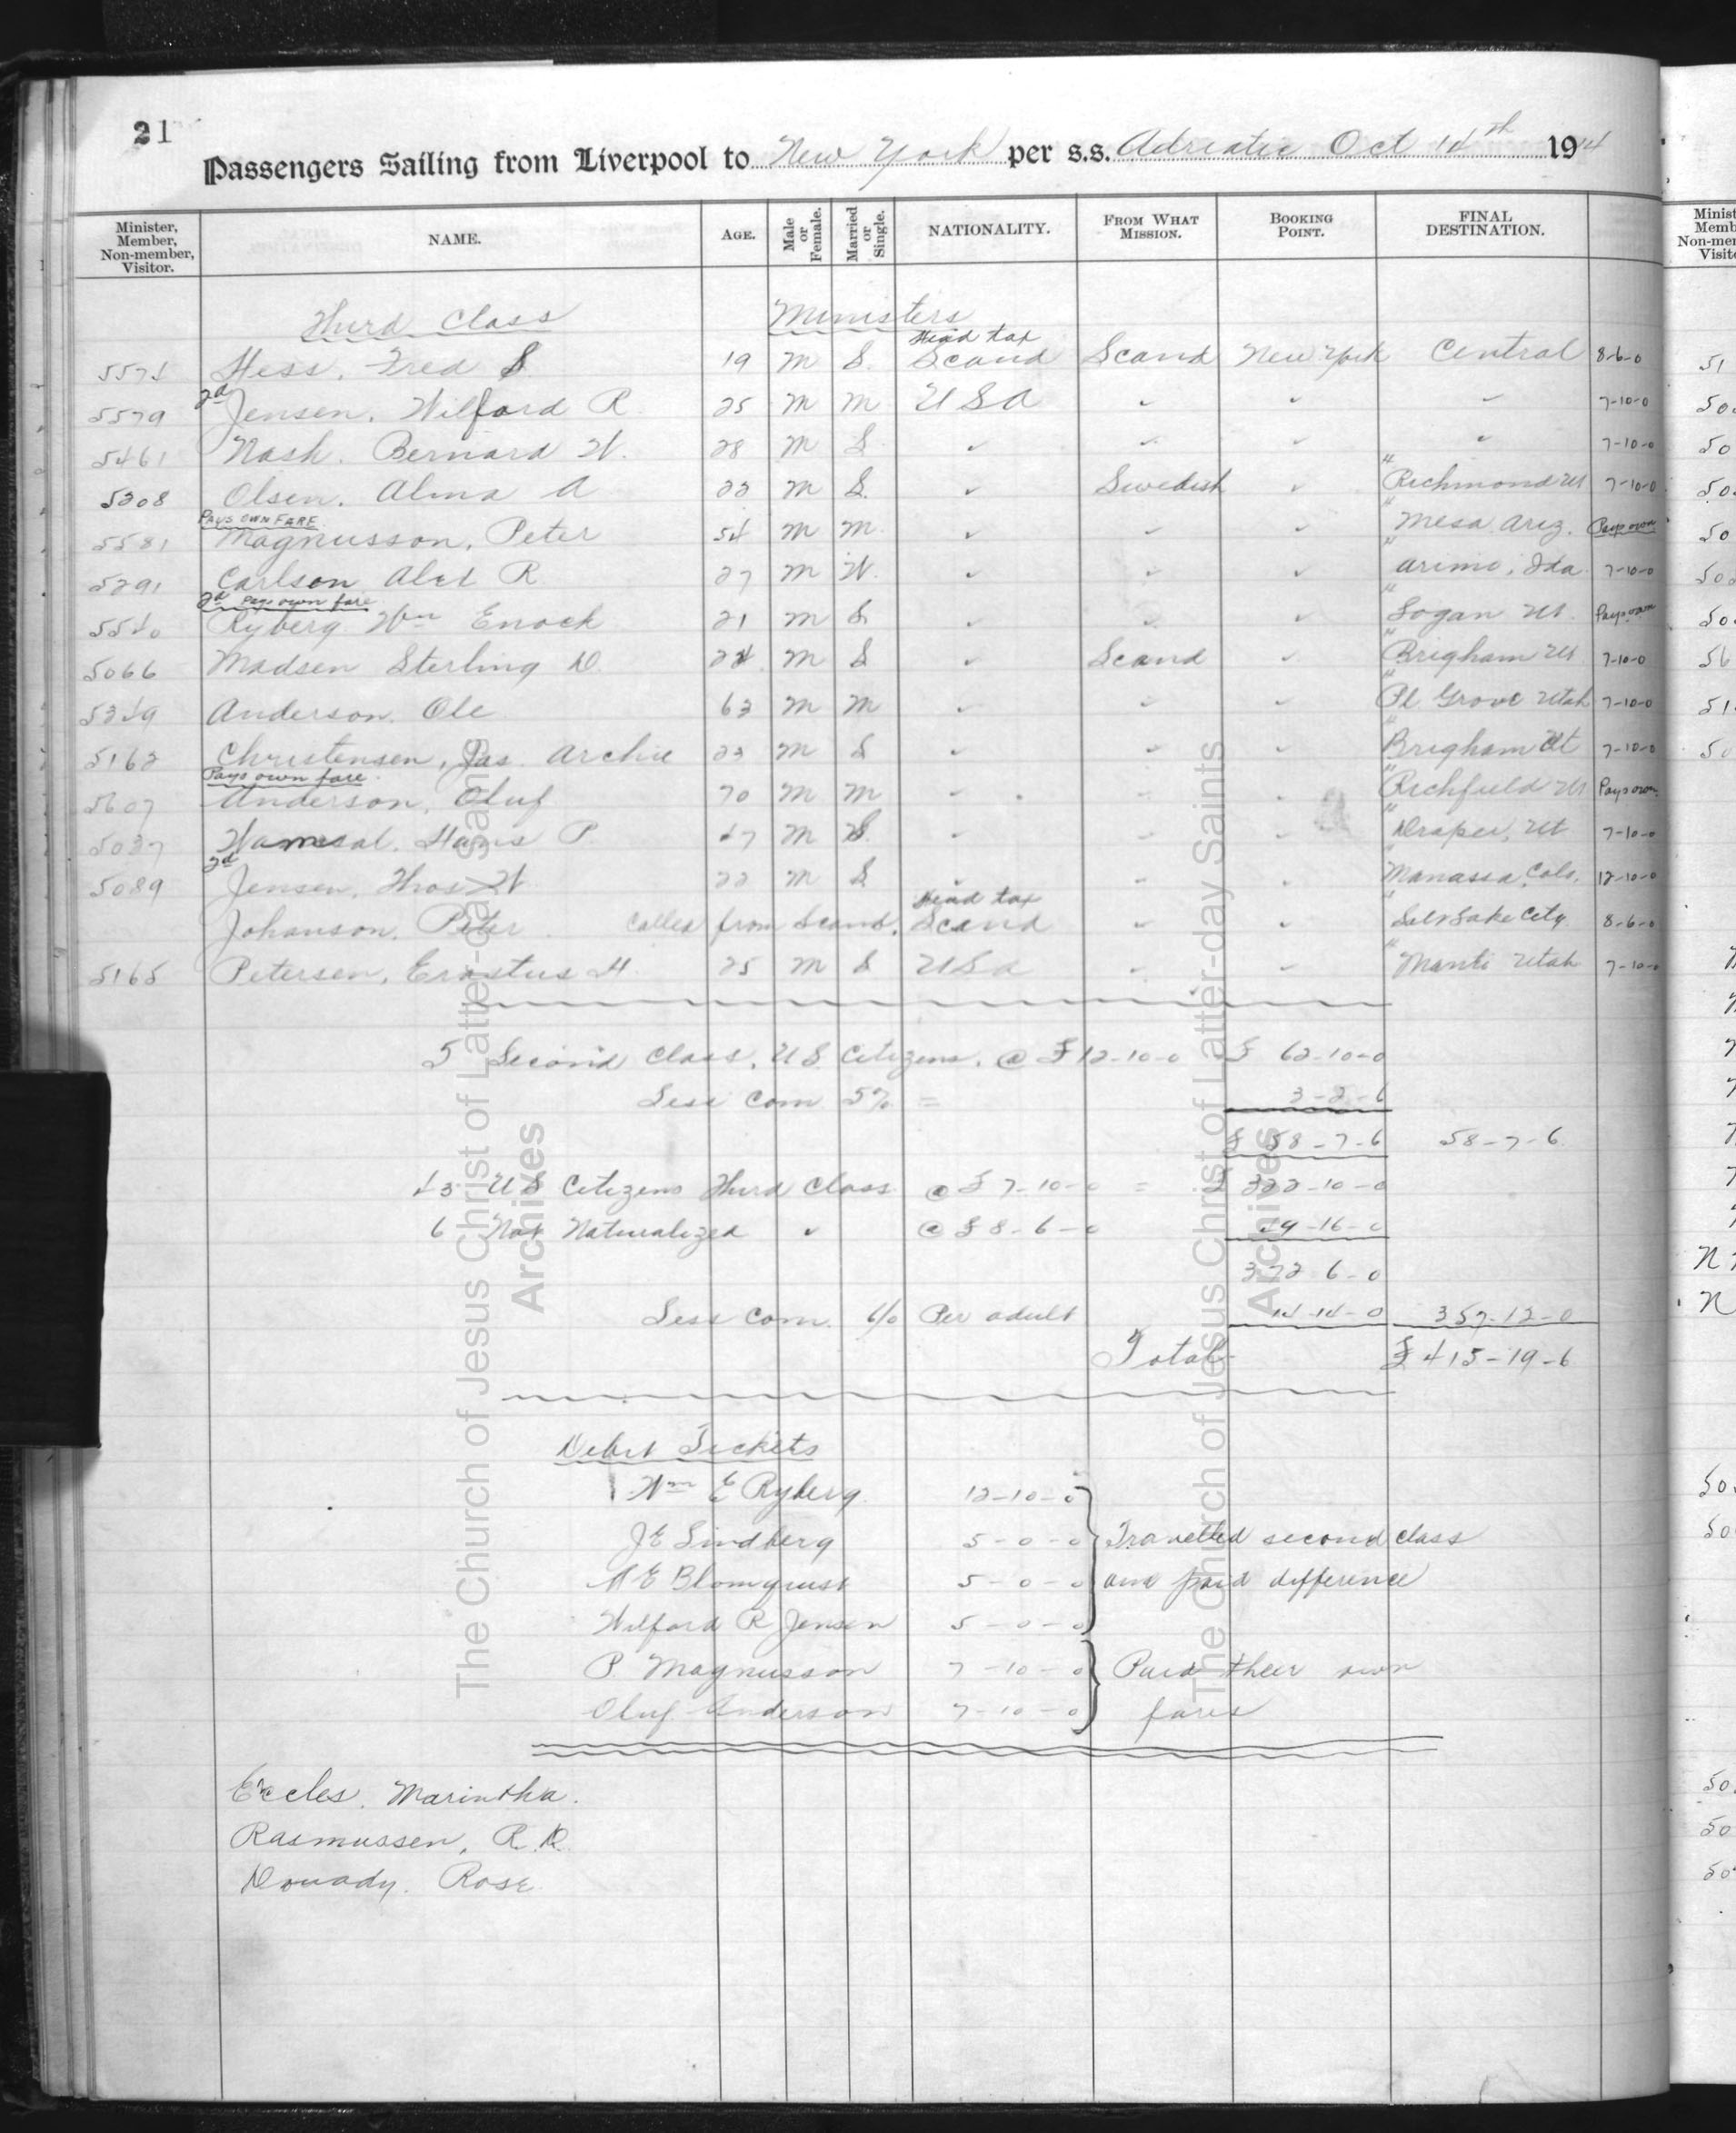 21
Passengers Sailing from Liverpool to New York per s.s. Adriatic Oct 14th 1914
Minister, Member, Non-member, Visitor. NAME. AGE. Male or Female. Married or Single. NATIONALITY. FROM WHAT MISSION. BOOKING POINT. FINAL DESTINATION.
Third Class Ministers
Head tax
5574 Hess, Fred S. 19 M S. Scand Scand New York Central 8-6-0
2d
5579 Jensen, Wilford R 25 M M USA ✓ ✓ ✓ 7-10-0
5461 Nash, Bernard W. 28 M S. ✓ ✓ ✓ ✓ 7-10-0
5208 Olsen, Alma A 22 M S. ✓ Swedish ✓ " Richmond Ut 7-10-0
PAYS OWN FARE
5581 Magnusson, Peter 54 M M ✓ ✓ ✓ " Mesa Ariz. Pays own
5291 Carlson Alex R 27 M W. ✓ ✓ ✓ " Arimo, Ida. 7-10-0
2d Pays own fare
5540 Ryberg Wm Enoch 21 M S ✓ ✓ ✓ " Logan Ut. Pays own
5066 Madsen Sterling D. 24 M S ✓ Scand ✓ " Brigham Ut 7-10-0
5349 Anderson, Ole 63 M M ✓ ✓ ✓ " Pl Grove Utah 7-10-0
5162 Christensen, Jas. Archie 23 M S ✓ ✓ ✓ " Brigham Ut 7-10-0
Pays own fare
5607 Anderson, Oluf 70 M M " Richfield Ut Pays own
5037 Hans P. 47 M " Draper, Ut 7-10-0
2d
5089 Jensen, Thos W 22 M S " Manassa, Colo. 12-10-0
Head tax
Johanson, Peter Called from Scand. Scand ✓ ✓ " Salt Lake City 8-6-0
5165 Petersen, Erastus H. 25 M S USA ✓ ✓ " Manti Utah 7-10-0
5 Second Class, US Citizens, @ £12-10-0 £ 62-10-0
Less Com 5% = 3-2-6
£ 58-7-6 58-7-6
43 US Citizens Third Class @ £7-10-0 = £ 322-10-0
6 Not Naturalized ✓ @ £8-6-0 49-16-0
372 6-0
Less Com. 6/0 Per adult 14-14-0 357-12-0
Total £415-19-6
Debit Tickets
Wm E Ryberg 12-10-0
J E Lindberg 5-0-0 Travelled second class
A E Blomquist 5-0-0 and paid difference
Wilford R Jensen 5-0-0
P. Magnusson 7-10-0 Paid their own
Oluf Anderson 7-10-0 fares
Eccles, Marintha.
Rasmussen, R. D.
Douady, Rose
The Church of Jesus Christ of Latter-day Saints
Archives
The Church of Jesus Christ of Latter-day Saints
Archives